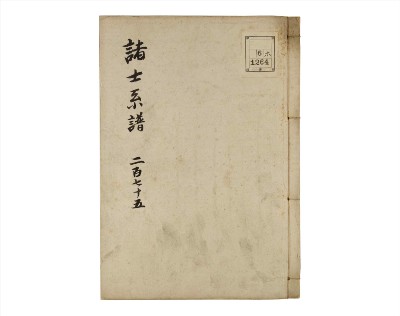 諸士系譜 二百七十五
16.ホ
1264